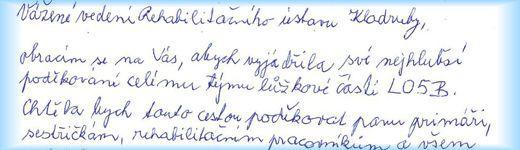 Vážené vedení Rehabilitačního ústavu Kladruby,
obracím se na Vás, abych vyjádřila své nejhlubší
poděkování celému týmu lůžkové části LO5B.
Chtěla bych touto cestou poděkovat panu primáři,
sestřičkám, rehabilitačním pracovníkům a všem